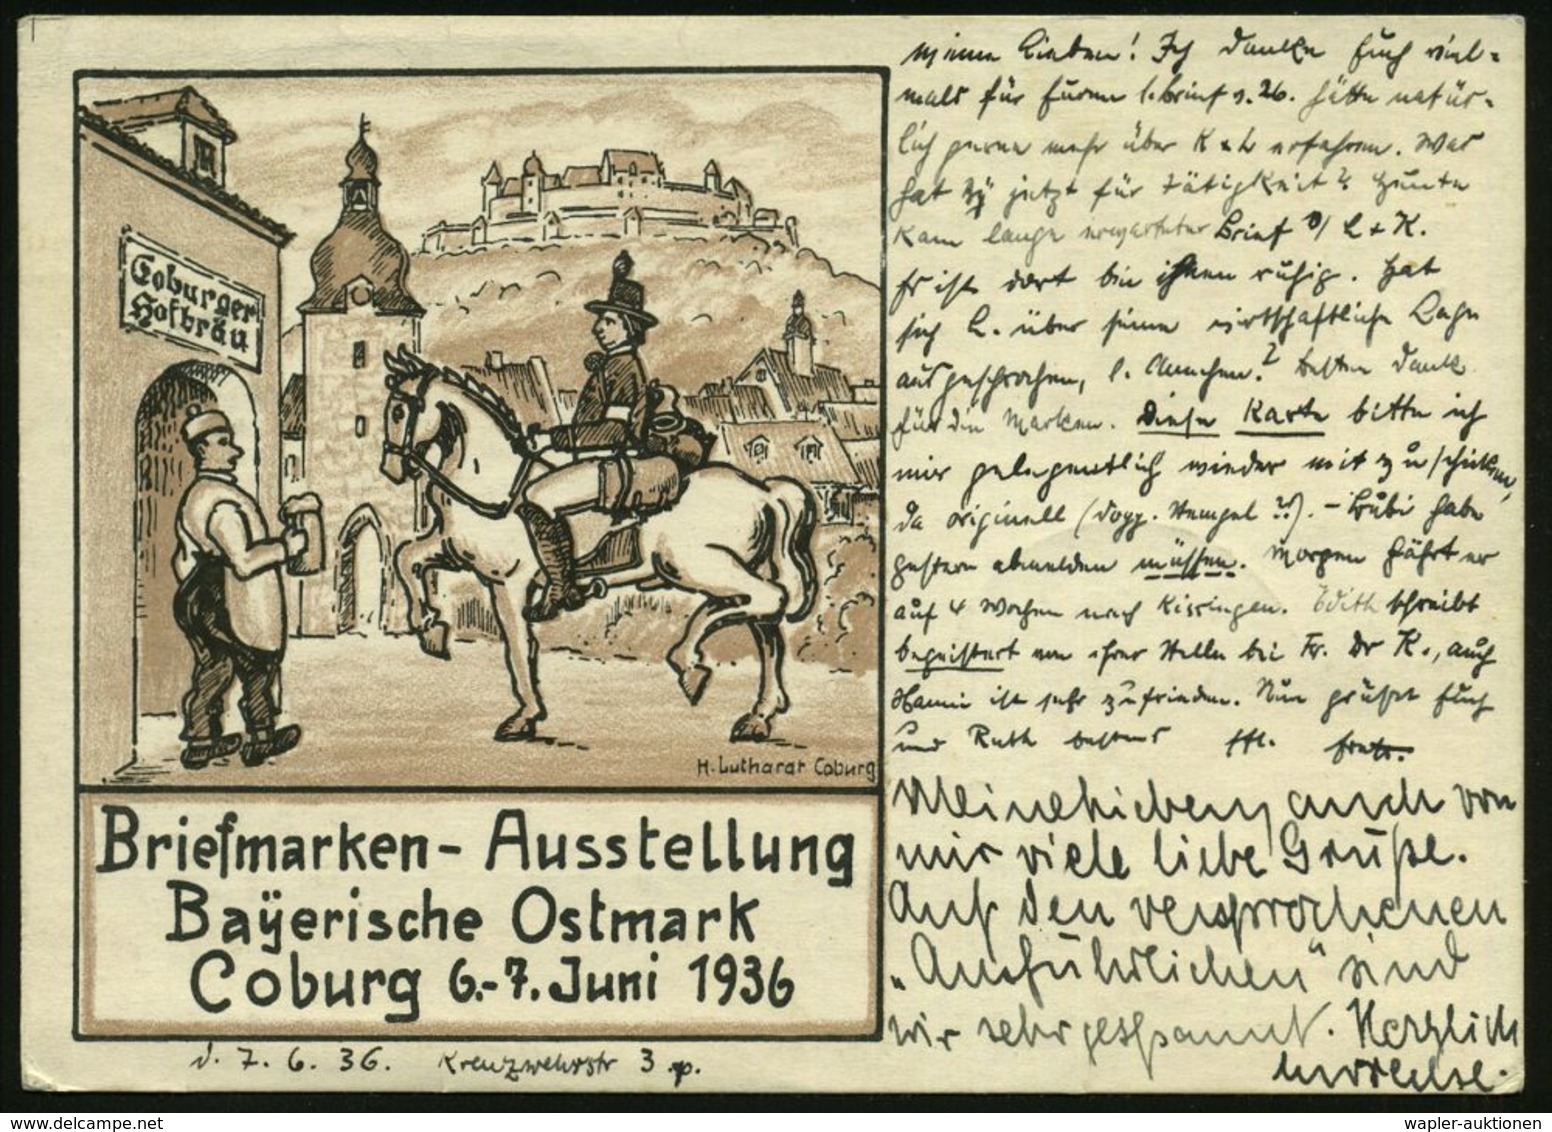 Coburger
Hofbräu
H. Lutharat Coburg
Briefmarken-Ausstellung
Bayerische Ostmark
Coburg 6.-7. Juni 1936
d. 7. 6. 36. Kreuzwehrstr 3 p.
Meine Lieben! Ich danke Euch viel=
mals für Euren l. Brief v. 26. hätte natür-
lich gerne mehr über K + L erfahren. Was
hat jetzt für Tätigkeit? Heute
kam lange erwarteter Brief v/ L + K.
Er ist dort bin ruhig. Hat
sich L. über seine wirtschaftliche Lage
ausgesprochen, l. Annchen? Besten Dank
für die Marken. Diese Karte bitte ich
mir gelegentlich wieder mit zuschicken,
da originell (dopp. Stempel ??). - Bubi habe
gestern abmelden müssen. Morgen fährt er
auf 4 Wochen nach Kissingen. Edith schreibt
begeistert von ihrer Stelle bei Fr. Dr K., auch
Hanni ist sehr zufrieden. Nun grüßt Euch
und Ruth bestens
Meine Lieben, auch von
mir viele liebe Grüße.
Auf den versprochenen
"Ausführlichen" sind
wir sehr gespannt. Herzlich
wapler-auktionen.com